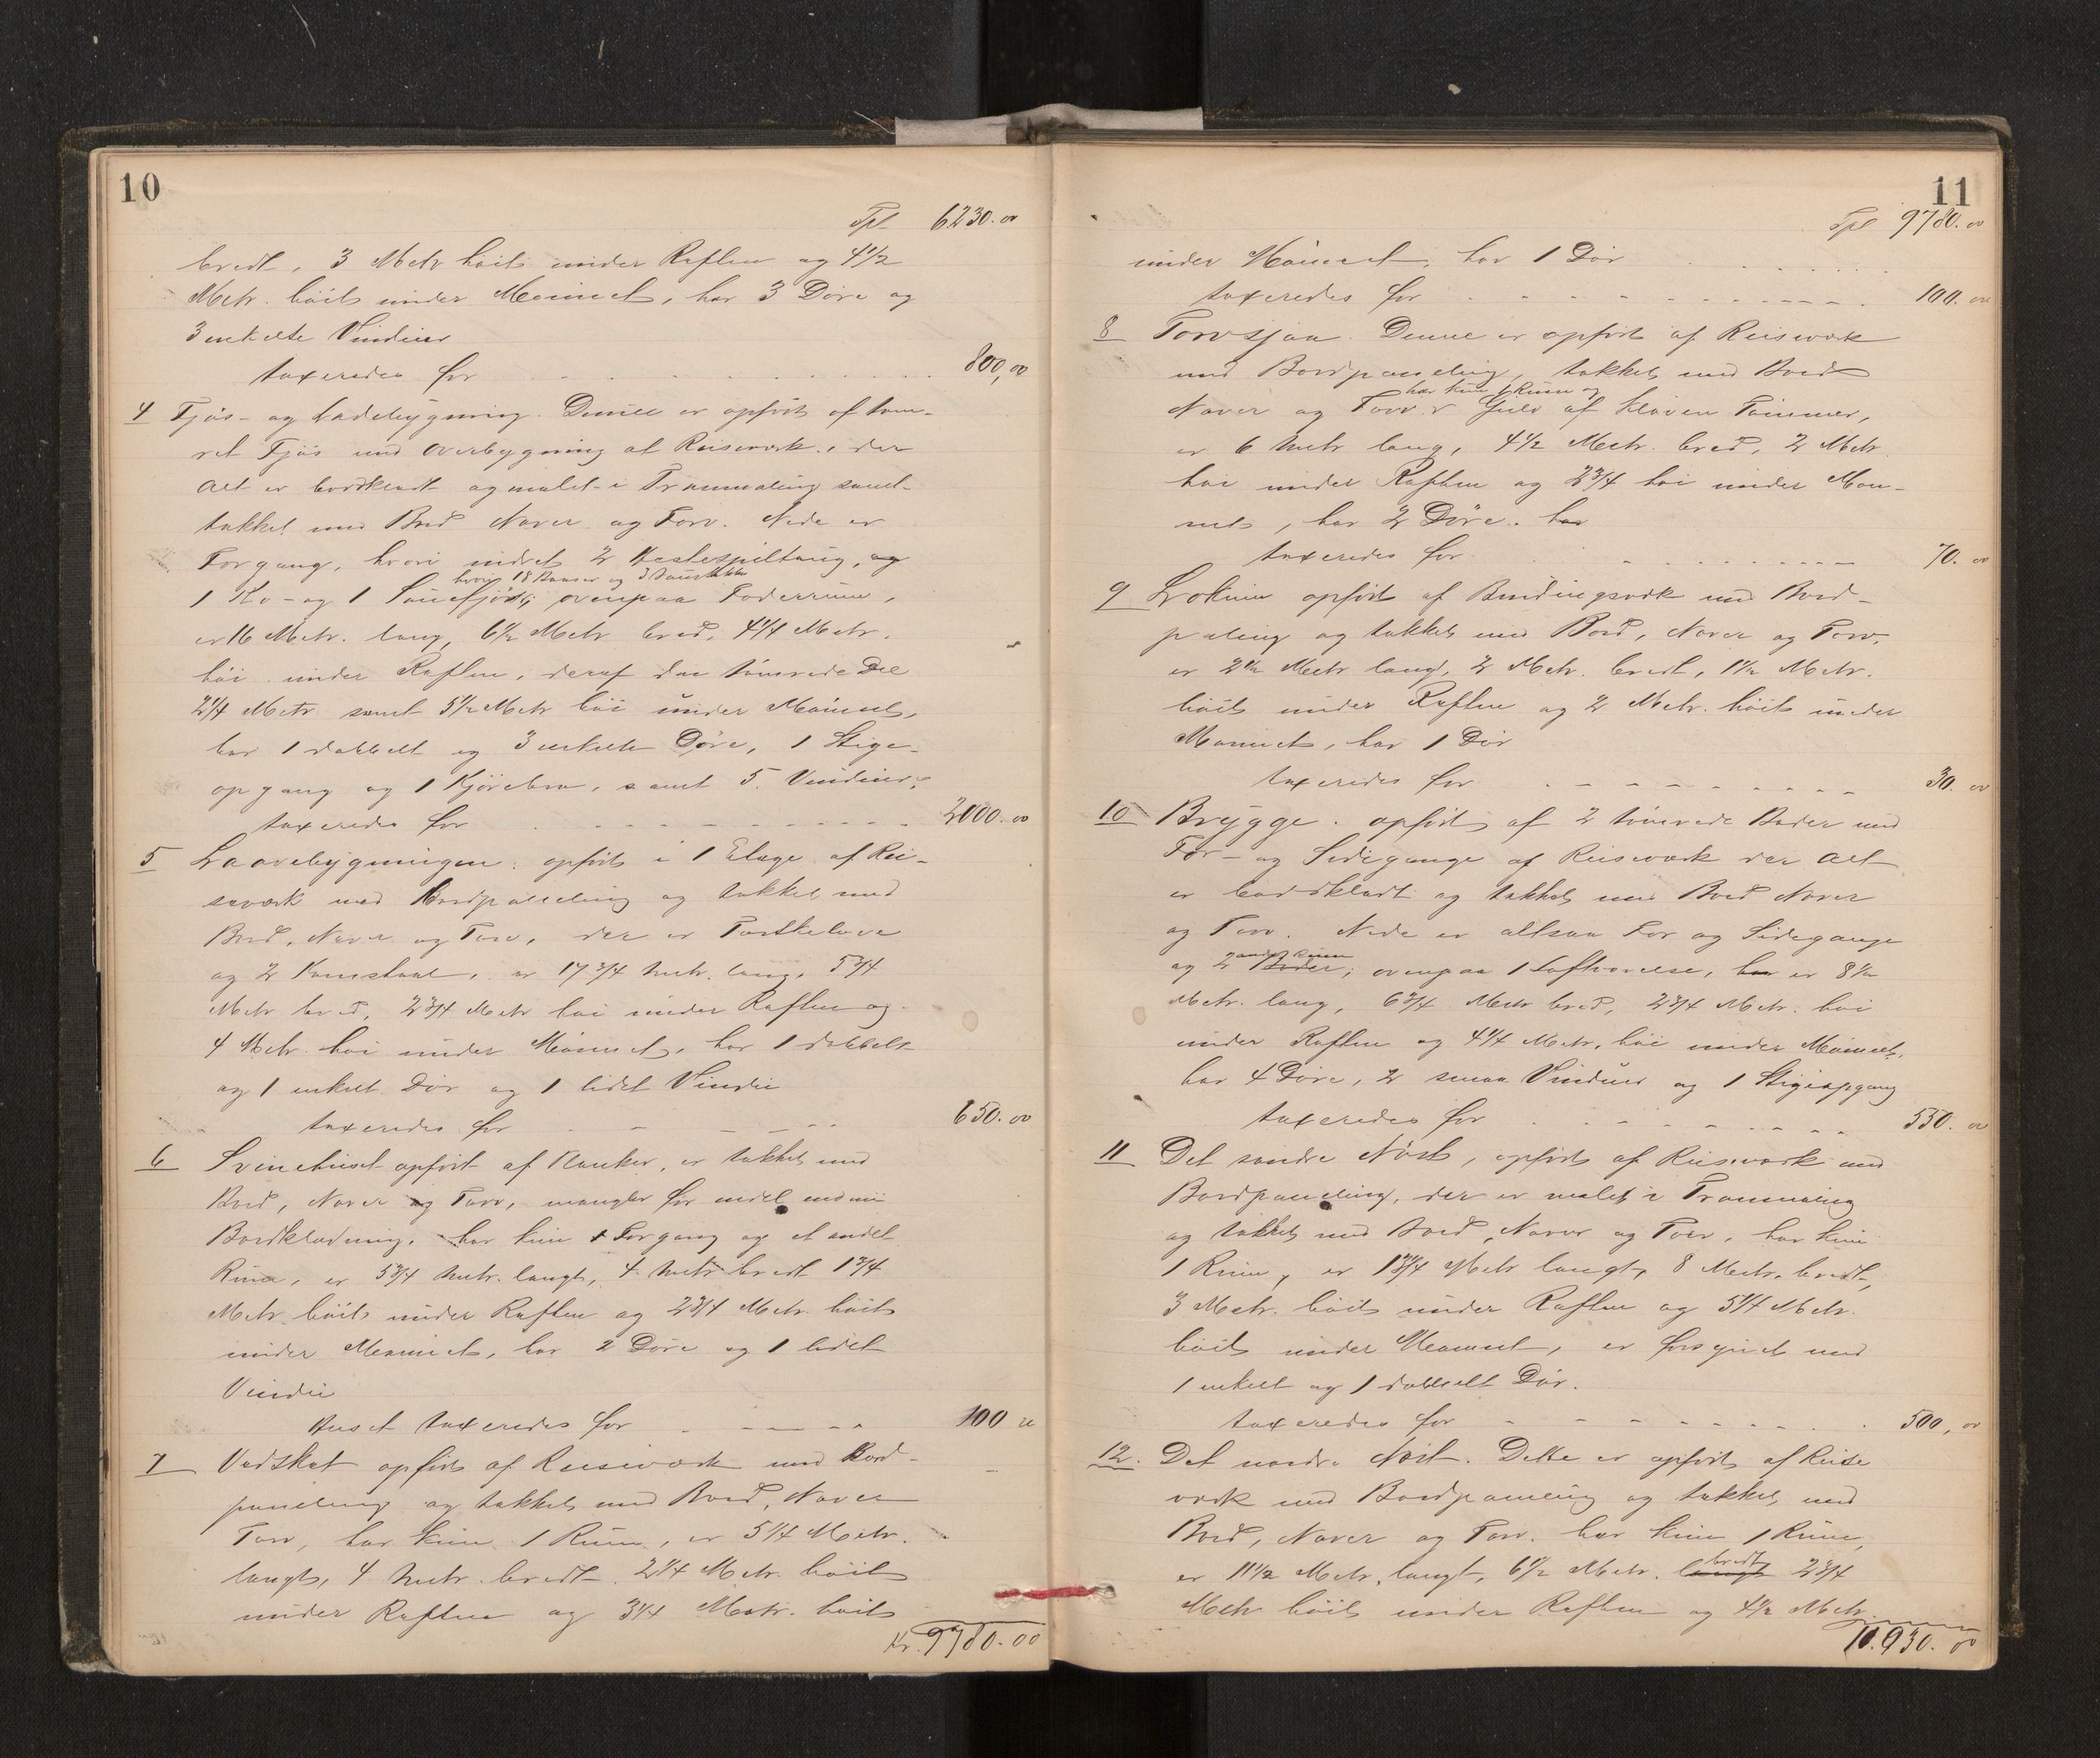 10
Tpt 6230.00
bredt, 3 Metr høit under Raften og 4 1/2
Metr. høit under Mønnet, har 3 Døre og
3 enkelte Vinduer
taxeredes for 800,00
4 Fjøs- og Ladebygning. Denne er opført af tøm-
ret Fjøs med Overbygning af Reisværk, der
Alt er bordklædt og malet i Tranmaling samt
tækket med Bord Næver og Torv. Nede er
Forgang, hvori indret 2 Hestespiltaug, og
hvori 18 Baaser og 3
1 Ko- og 1 Sauefjøs; ovenpaa Foderrum,
er 16 Metr. lang, 6 1/2 Metr bred, 4 1/4 Metr.
høi under Raften, deraf den tømrede Del
2 1/4 Metr samt 5 1/2 Metr høi under Mønnet,
har 1 dobbelt og 3 enkelte Døre, 1 Stige-
opgang og 1 Kjørebro, samt 5 Vinduer,
taxeredes for 2000.00
5 Laavebygningen: opført i 1 Etage af Rei-
seværk med Bordpaneling og tækket med
Bord, Næver og Torv, der er Tærskelove
og 2 Kornstaal, er 17 3/4 Metr. lang, 5 3/4
Metr bred, 2 3/4 Metr høi under Raften og
4 Metr. høi under Mønnet, har 1 dobbelt
og 1 enkelt Dør og 1 lidet Vindu
taxeredes for 650.00
6 Svinehuset opført af Planker, er tækket med
Bord, Næver og Torv, mangler for endel endnu
Bordklædning, har kun 1 Forgang og et andet
Rum, er 5 3/4 Metr. langt, 4 Metr bredt 1 3/4
Metr. høit under Raften og 2 3/4 Metr. høit
under Mønnet, har 2 Døre og 1 lidet
Vindu
Huset taxeredes for 100 00
7 Vedskot opført af Reisværk med Bord-
paneling og tækket med Bord, Næver
Torv, har kun 1 Rum, er 5 1/4 Metr.
langt, 4 Metr. bredt 2 1/4 Metr. høit
under Raften og 3 1/4 Metr. høit
Kr. 9780.00
11
Tpt 9780.00
under Mønnet, har 1 Dør
taxeredes for 100.00
8 Torvsjaa. Denne er opført af Reisværk
med Bordpaneling, tækket med Bord
har kun 1 Rum og
Næver og Torv Gulv af kløven Tømmer,
er 6 Metr lang, 4 1/2 Metr. bred, 2 Metr.
høi under Raften og 2 3/4 høi under Møn-
net, har 2 Døre. har
taxeredes for 70.00
9 Lokum opført af Bindingsværk med Bord-
paling og tækket med Bord, Næver og Torv,
er 2 1/2 Metr langt, 2 Metr. bredt, 1 1/2 Metr.
høit under Raften og 2 Metr. høit under
Mønnet, har 1 Dør
taxeredes for 30.00
10 Brygge. opført af 2 tømrede Boder med
For- og Sidegange af Reisværk der Alt
er bordklædt og tækket med Bord Næver
og Torv. Nede er altsaa For og Sidegange
andre Rum
og 2 Boder; ovenpaa 1 Loftværelse, har er 8 1/2
Metr. lang, 6 3/4 Metr bred, 2 3/4 Metr. høi
under Raften og 4 1/4 Metr. høi under Mønnet,
har 4 Døre, 2 smaa Vinduer og 1 Stigeopgang
taxeredes for 550.00
11 Det søndre Nøst, opført af Reisværk med
Bordpaneling, der er malet i Tranmaling
og tækket med Bord, Næver og Torv, har kun
1 Rum, er 13 3/4 Metr langt, 8 Metr. bredt,
3 Metr. høit under Raften og 5 1/4 Metr.
høit under Mønnet, er forsynet med
1 enkelt og 1 dobbelt Dør.
taxeredes for 500,00
12. Det nordre Nøst. Dette er opført af Reise
værk med Bordpaneling og tækket med
Bord, Næver og Torv. har kun 1 Rum,
bredt
er 11 1/2 Metr. langt, 6 1/2 Metr. langt 2 3/4
Metr høit under Raften og 4 1/2 Metr.
10.930.00